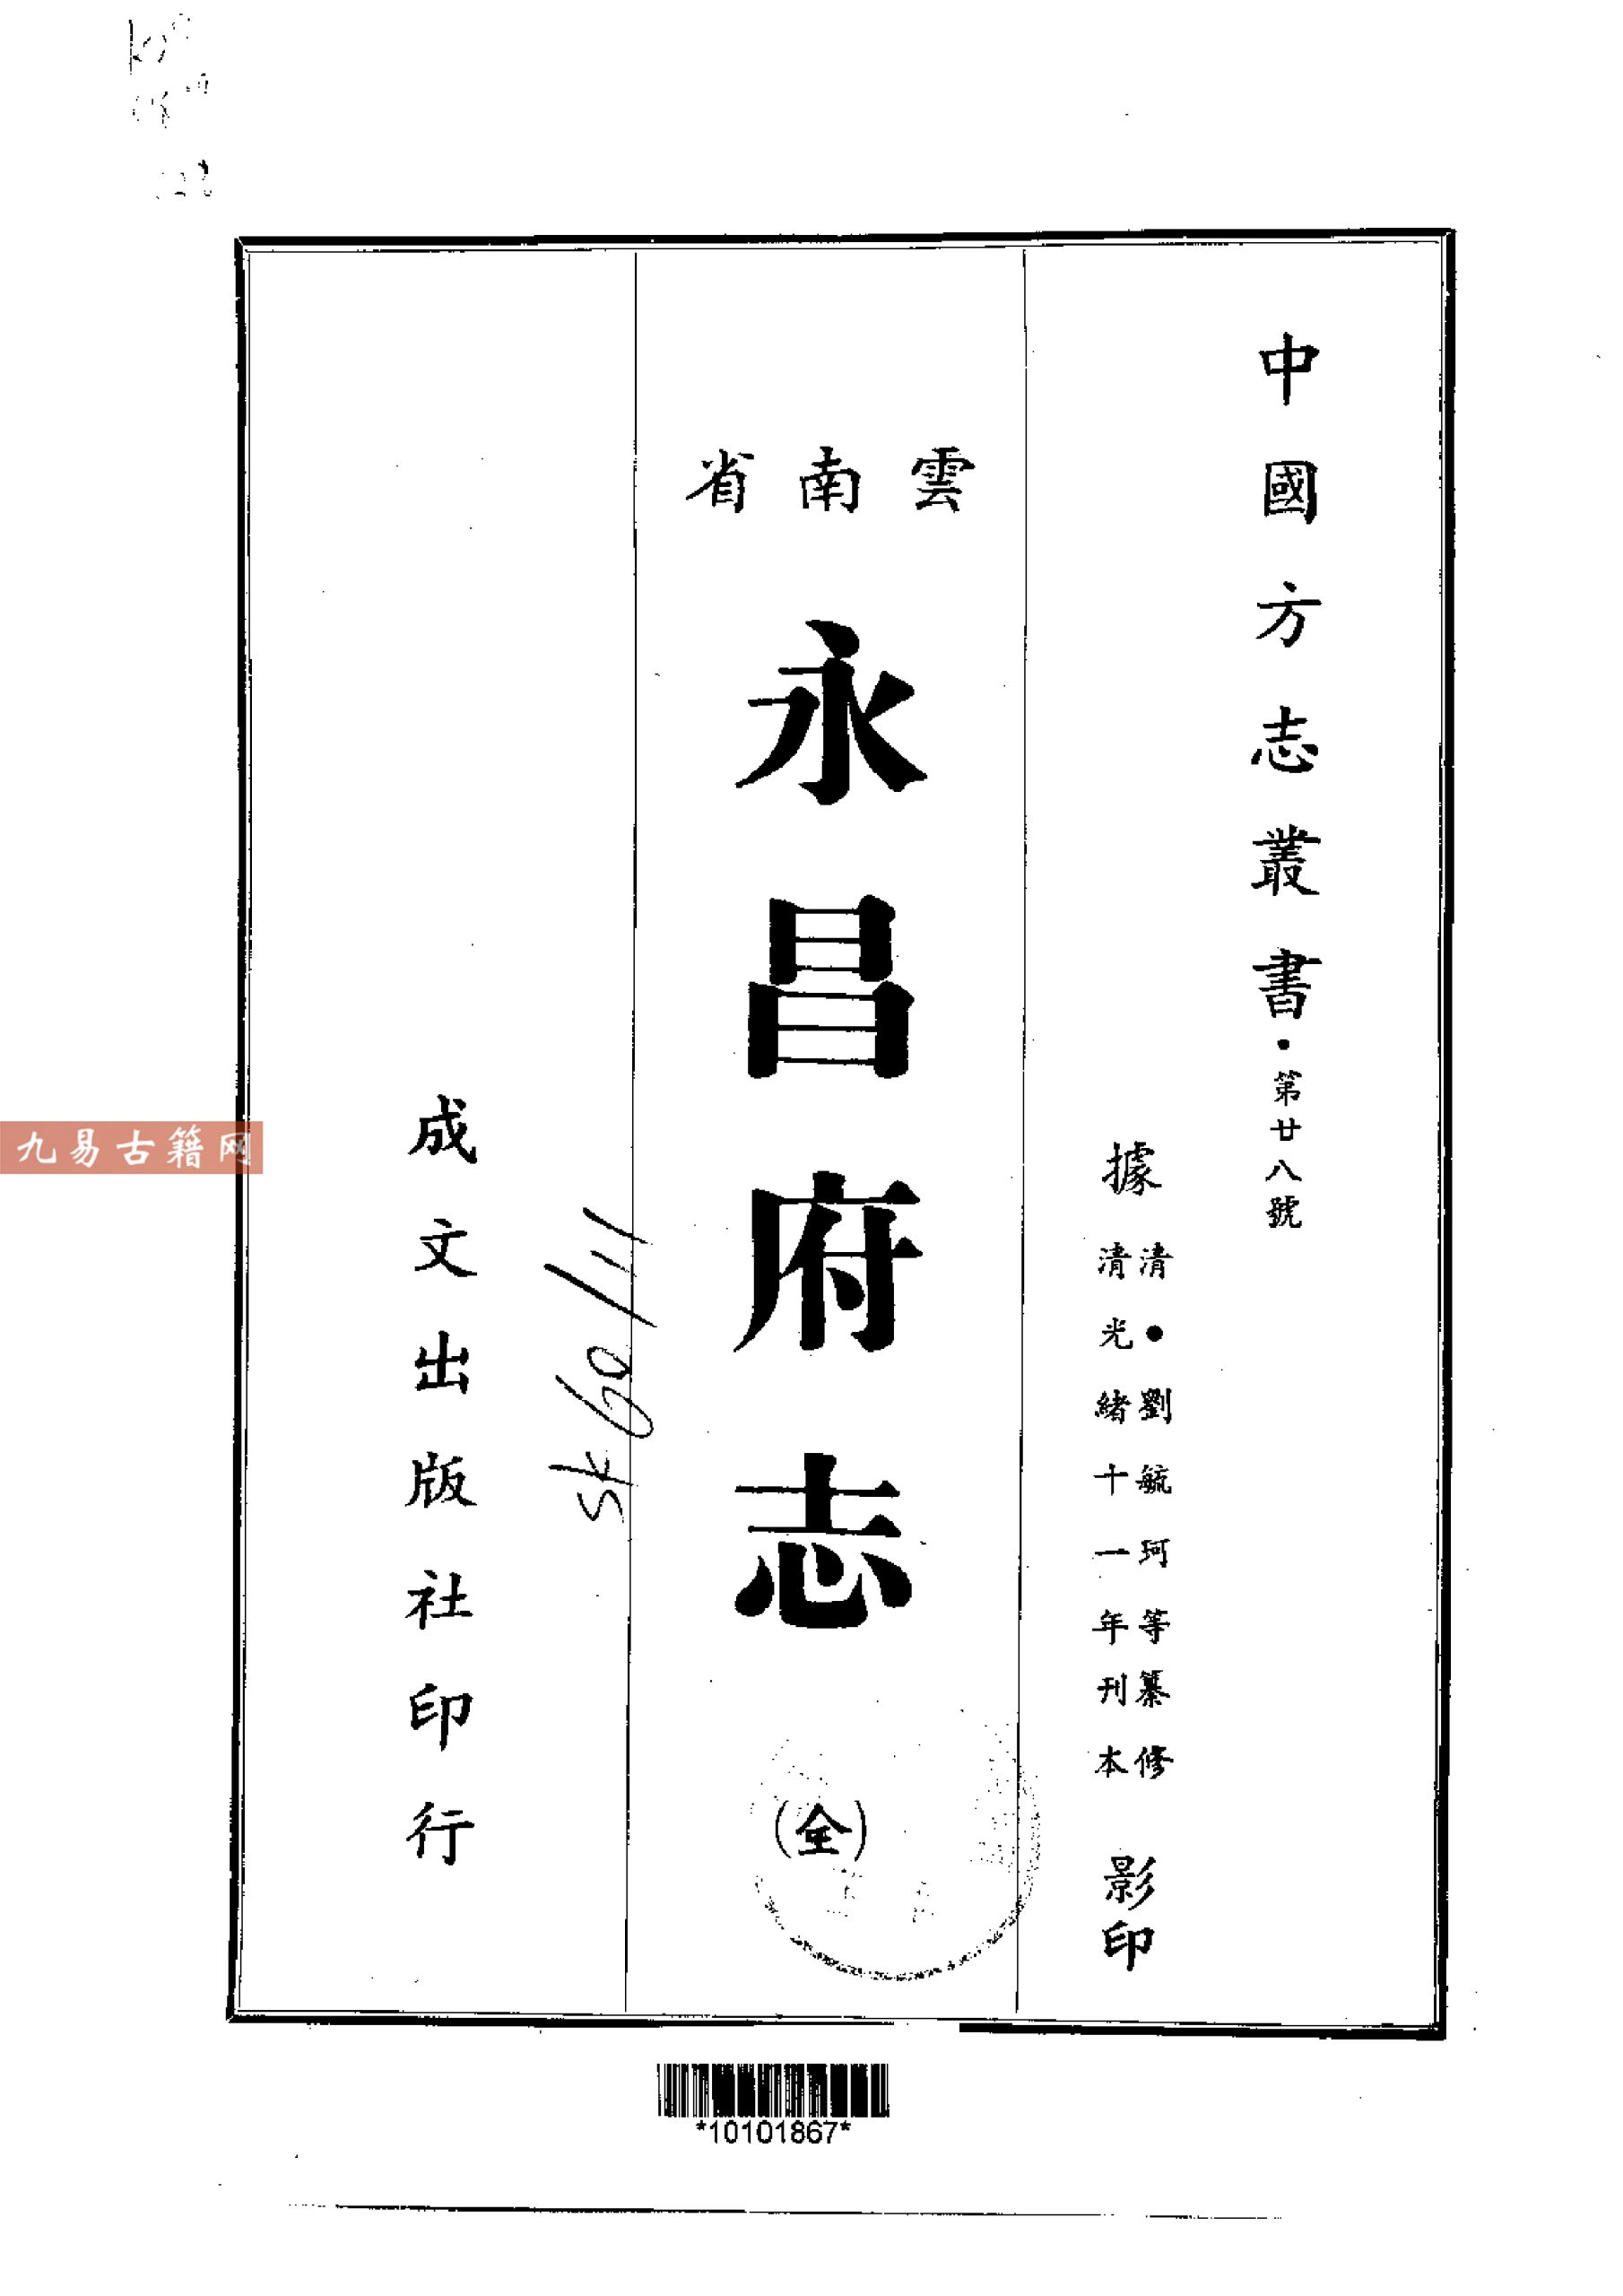 中國方志叢書・第廿八號
據
清●劉毓珂等纂修
清光緒十一年刊本
影印
雲南省
永昌府志
(全)
成文出版社印行
九易古籍网
*10101867*